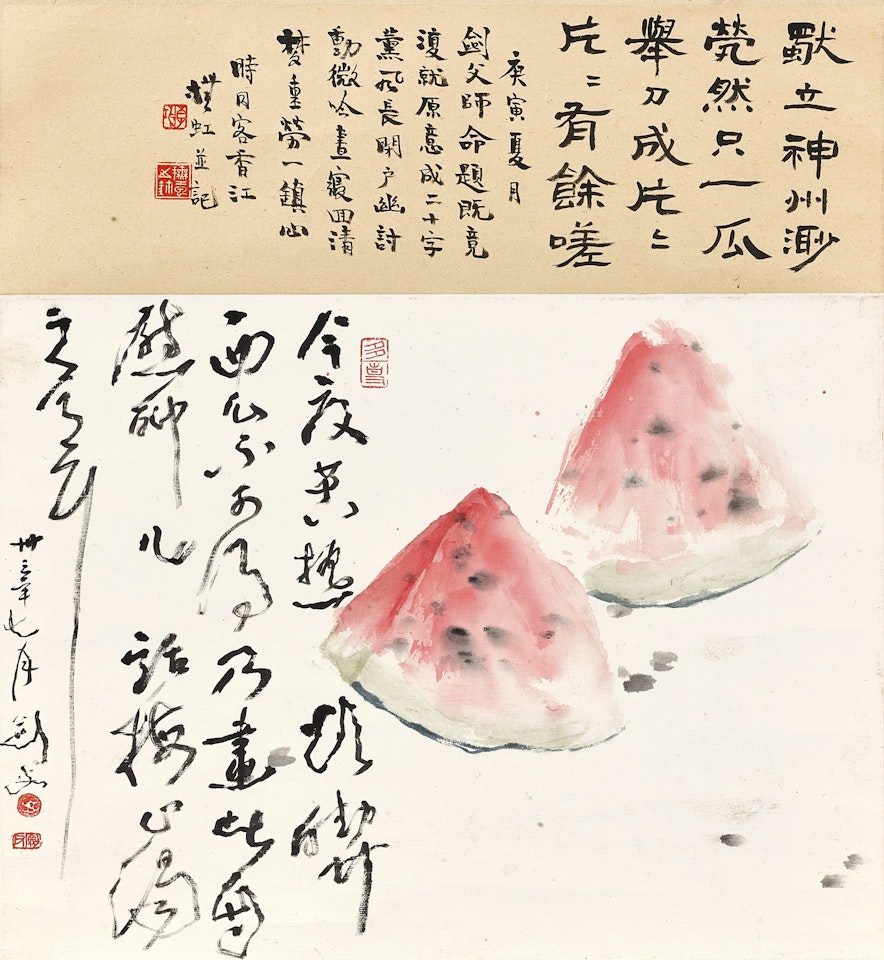 獨立神州渺
煢然只一瓜
舉刀成片〻
片〻有餘嗟
庚寅夏月
劍父師命題既竟
復就原意成二十字
薰風長閉戶幽討
動微吟晝寢回清
夢重勞一鎮心
時同客香江
虹並記
今夜苦熱
西瓜不可得乃畫此
兒話梅止渴
之意
卅三年七月劍父